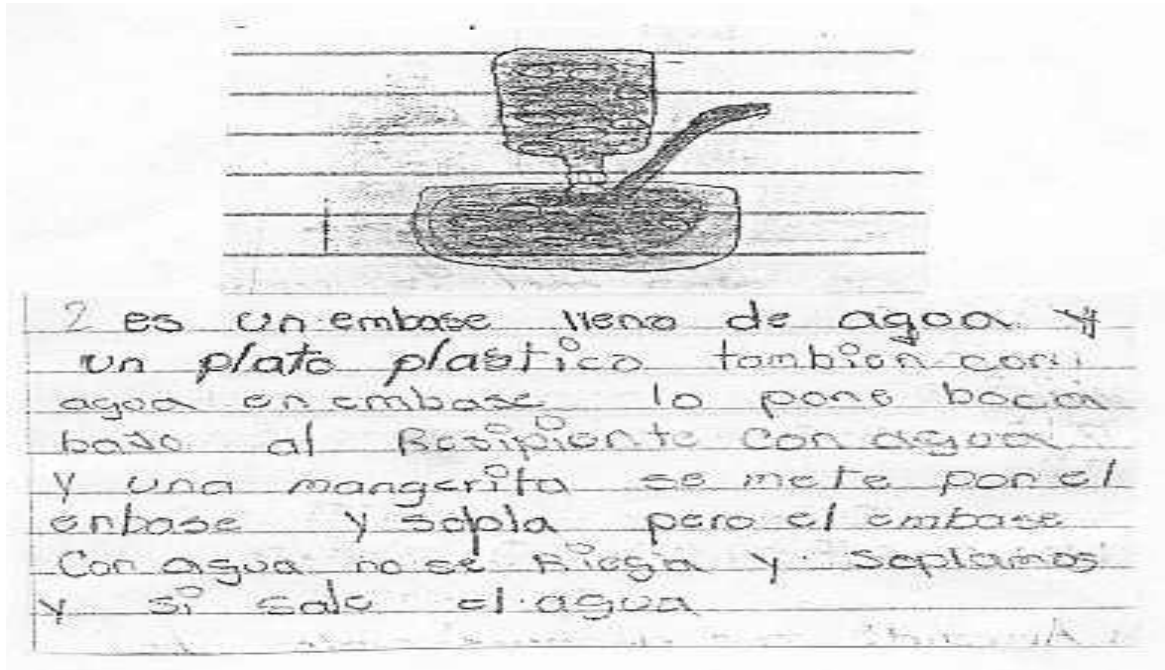 2 es un embase lleno de agoa y
un plato plastico tambien con
agoa en embase lo pone boca
bajo al Resipiente con agua
y una mangerita se mete por el
enbase y sopla pero el embase
Con agua no se Riega y Soplamos
y si sale el agua